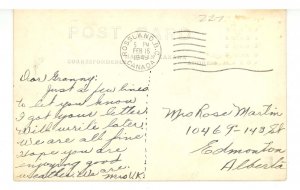 227
POST CARD
ROSSLAND, B.C.
5 PM
FEB 15
1949
CANADA
CORRESPONDENCE
Dear Granny:
Just a few lines
to let you know
I got your letter
Will write later
We are all fine
Hope you are
enjoying good
weather. We are.
Mrs Rose Martin
10469-143 St
Edmonton
Alberta